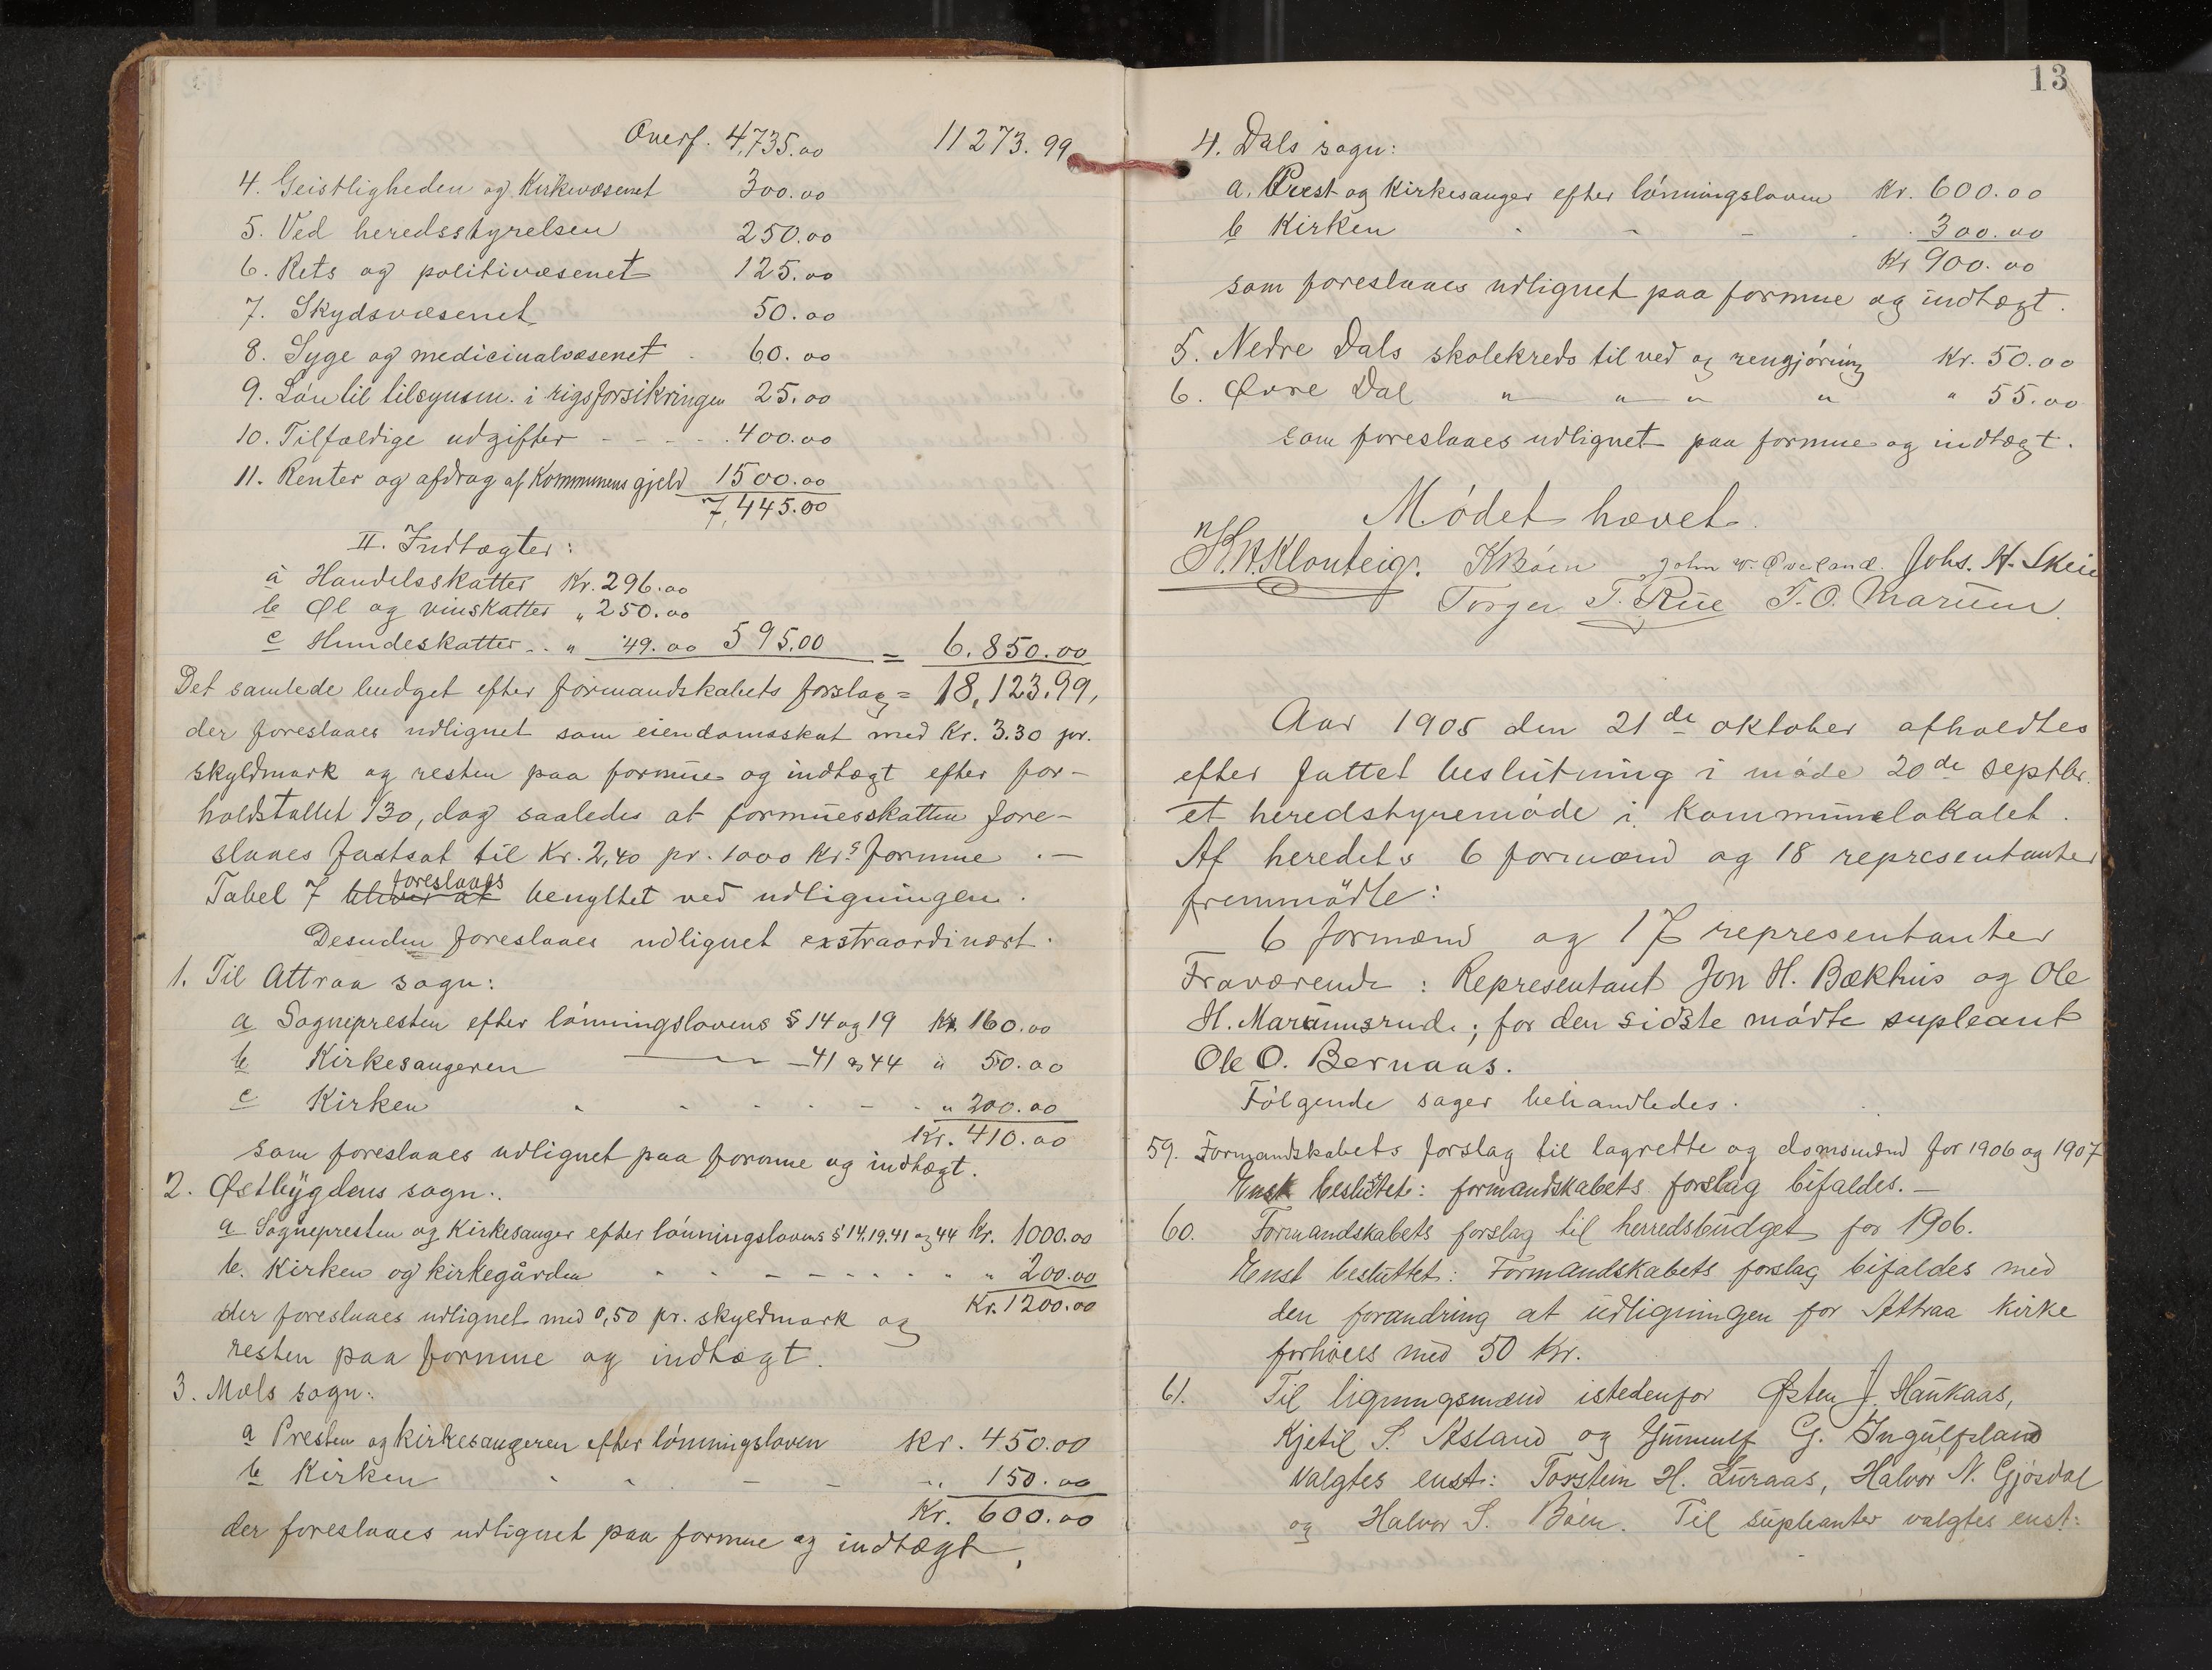 Overf. 4,735.00 11273.99
4. Geistligheden og Kirkevæsenet 300.00
5. Ved heredsstyrelsen 250.00
6. Rets og politivæsenet 125.00
7. Skydsvæsenet 50.00
8. Syge og medicinalvæsenet 60.00
9. Løn til tilsynsm. i rigsforsikringen 25.00
10. Tilfældige udgifter - - - - 400.00
11. Renter og afdrag af Kommunens gjeld 1500.00
7,445.00
II. Indtægter:
a Handelsskatter Kr. 296.00
b Øl og vinskatter " 250.00
c Hundeskatter " 49.00 595.00 = 6.850.00
Det samlede budget efter formandskabets forslag = 18,123.99,
der foreslaaes udlignet som eiendomsskat med Kr. 3.30 pr.
skyldmark og resten paa formue og indtægt efter for-
holdstallet 1/30, dog saaledes at formuesskatten fore-
slaaes fastsat til Kr. 2,40 pr. 1000 Krs formue . —
foreslaaes
Tabel 7 bliver at benyttet ved udligningen.
Desuden foreslaaes udlignet exstraordinært.
1. Til Attraa sogn:
a Sognepresten efter lønningslovens § 14 og 19 Kr. 160.00
b Kirkesangeren — - 41 og 44 " 50.00
c Kirken " 200.00
Kr. 410.00
som foreslaaes udlignet paa formue og indtægt.
2. Østbygdens sogn:
a Sognepresten og Kirkesanger efter lønningslovens § 14.19.41 og 44 Kr. 1000.00
b. Kirken og kirkegården " 200.00
Kr. 1200.00
der foreslaaes udlignet med 0,50 pr. skyldmark og
resten paa formue og indtægt.
3. Mæls sogn:
a Presten og kirkesangeren efter lønningsloven Kr. 450.00
b Kirken " 150.00
Kr. 600.00
der foreslaaes udlignet paa formue og indtægt,
13
4. Dals sogn:
a. Prest og Kirkesanger efter lønningsloven Kr. 600.00
b Kirken 300.00
Kr 900.00
som foreslaaes udlignet paa formue og indtægt.
5. Nedre Dals skolekreds til ved og rengjøring Kr. 50.00
6. Øvre Dal " " " " " 55.00
som foreslaaes udlignet paa formue og indtægt.
Mødet hævet.
H. H. Klonteig. K Bøen John W. Øverland. Johs. H. Skeie
Torger T. Rue T. O. Marum.
Aar 1905 den 21de oktober afholdtes
efter fattet beslutning i møde 20de septbr.
et heredstyremøde i kommunelokalet.
Af heredets 6 formænd og 18 representanter
fremmødte:
6 formænd og 17 representanter
Fraværende: Representant Jon H. Bækhus og Ole
H. Marumsrud.; for den sidste mødte supleant
Ole O. Bernaas.
Følgende sager behandledes.
59. Formandskabets forslag til lagrette og domsmænd for 1906 og 1907
Enst besluttet: formandskabets forslag bifaldes. —
60. Formandskabets forslag til herredsbudget for 1906.
Enst besluttet: Formandskabets forslag bifaldes med
den forandring at udligningen for Attraa kirke
forhøies med 50 Kr.
61. Til ligningsmænd istedenfor Østen J. Haukaas,
Kjetil S. Aasland og Gunnulf G. Ingulfsland
valgtes enst: Torstein H. Luraas, Halvor N. Gjøsdal
og Halvor S. Bøen. Til supleanter valgtes enst: